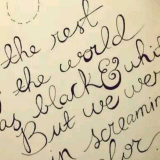 the rest
the world
as black & whi
But we wer
in screamin
olor.